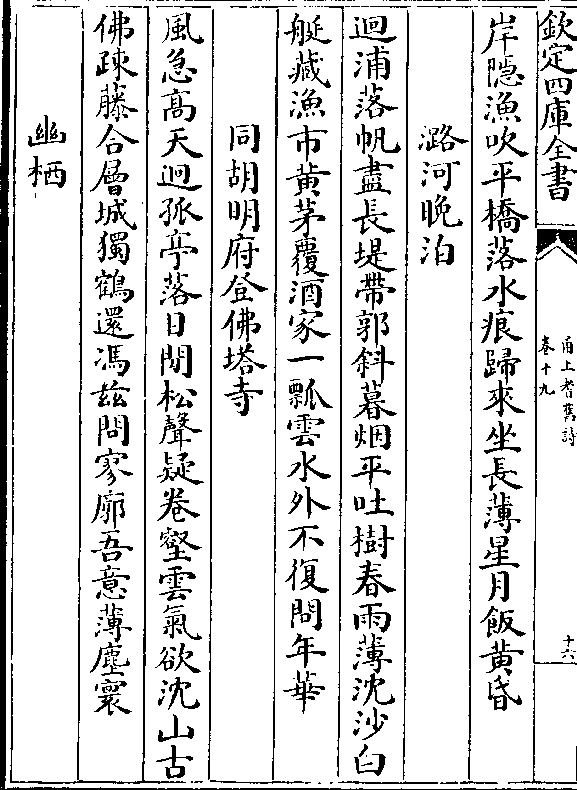 欽定四庫全書
甬上耆舊詩
卷十九
十六
岸隱漁吹平橋落水痕歸來坐長薄星月飯黃昏
潞河晚泊
迴浦落帆盡長堤帶郭斜暮烟平吐樹春雨薄沈沙白
艇藏漁市黃茅覆酒家一瓢雲水外不復問年華
同胡明府登佛塔寺
風急高天迥孤亭落日閒松聲疑卷壑雲氣欲沈山古
佛疎藤合層城獨鶴還馮茲問寥廓吾意薄塵寰
幽栖